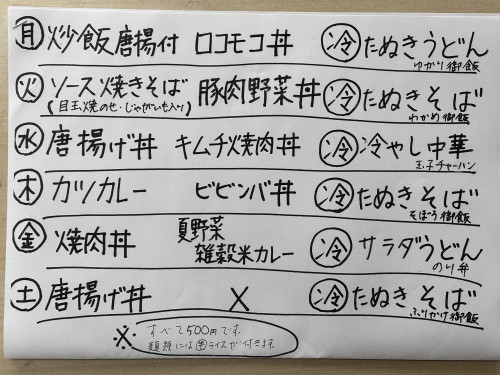 月 炒飯唐揚付 ロコモコ丼 冷 たぬきうどん
ゆかり御飯
火 ソース焼きそば 豚肉野菜丼 冷 たぬきそば
(目玉焼のせ・じゃがいも入り) わかめ御飯
水 唐揚げ丼 キムチ焼肉丼 冷 冷やし中華
玉子チャーハン
木 カツカレー ビビンバ丼 冷 たぬきそば
そぼろ御飯
金 焼肉丼 夏野菜 冷 サラダうどん
雑穀米カレー のり弁
土 唐揚げ丼 × 冷 たぬきそば
ふりかけ御飯
※ すべて500円です。
麺類には 半 ライスが付きます。